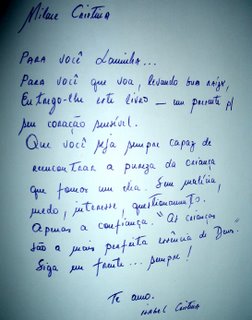 Milene Cristina
Para você Laninha...
Para você que voa, levando sua raiz,
Entrego-lhe este livro — um presente p/
seu coração sensível.
Que você seja sempre capaz de
reencontrar a pureza da criança
que fomos um dia. Sem malícia,
medo, interesse, questionamento.
Apenas a confiança. "As crianças
são a mais perfeita essência de Deus".
Siga em frente... sempre!
Te amo.
Isabel Cristina